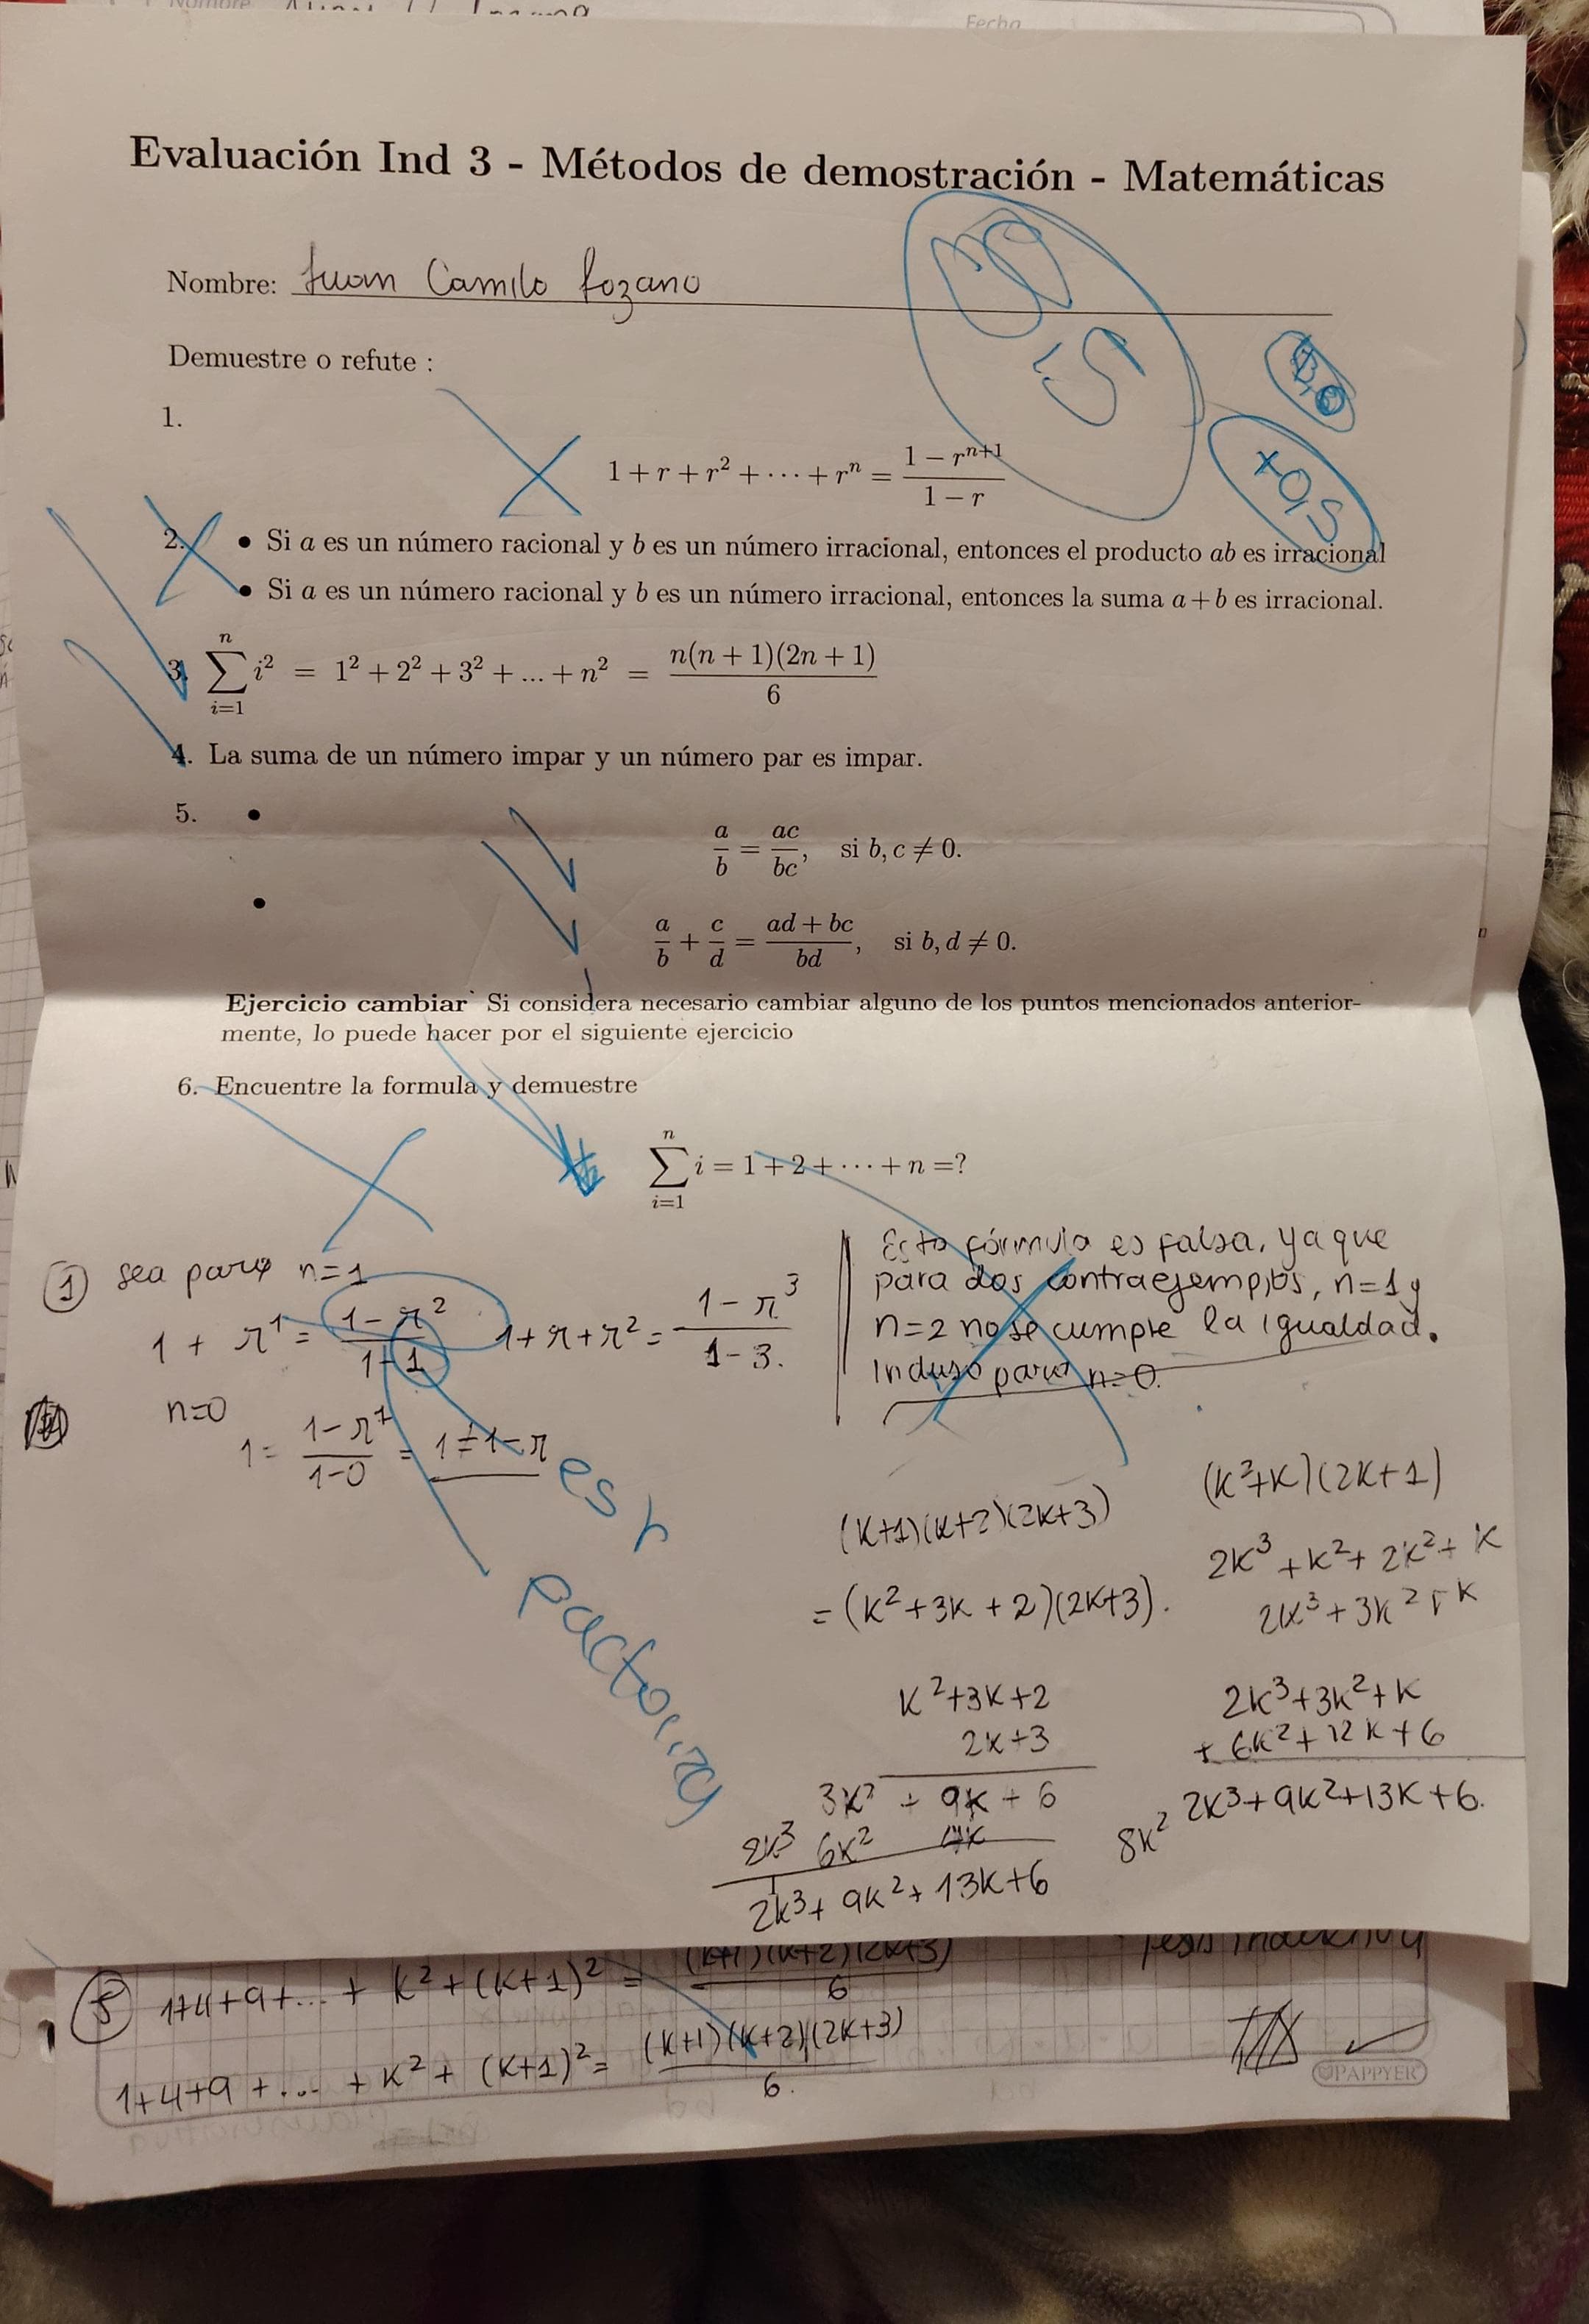 Nombre
Fecha
Evaluación Ind 3 - Métodos de demostración - Matemáticas
Nombre: Juan Camilo Lozano
Demuestre o refute :
+0,5
1.
1 + r + r² + ⋯ + rⁿ = (1 − rⁿ⁺¹)/(1 − r)
2. • Si a es un número racional y b es un número irracional, entonces el producto ab es irracional
• Si a es un número racional y b es un número irracional, entonces la suma a + b es irracional.
3. ∑_{i=1}^{n} i² = 1² + 2² + 3² + ... + n² = n(n + 1)(2n + 1)/6
4. La suma de un número impar y un número par es impar.
5. •
a/b = ac/bc, si b, c ≠ 0.
•
a/b + c/d = (ad + bc)/bd, si b, d ≠ 0.
Ejercicio cambiar Si considera necesario cambiar alguno de los puntos mencionados anterior-
mente, lo puede hacer por el siguiente ejercicio
6. Encuentre la formula y demuestre
∑_{i=1}^{n} i = 1 + 2 + ⋯ + n =?
① sea para n=1
1 + r¹ = (1 − r²)/(1−1) 1+r+r² = (1 − r³)/(1−3).
n=0
1 = (1−r¹)/(1−0) = 1≠1−r
Esta fórmula es falsa, ya que
para dos contraejemplos, n=1 y
n=2 no se cumple la igualdad.
Incluso para n=0.
es r
(k+1)(k+2)(2k+3)
= (k²+3k+2)(2k+3).
(k²+k)(2k+1)
2k³+k²+2k²+k
2k³+3k²+k
k²+3k+2
2k+3
3k² + 9k + 6
2k³ 6k² 4k
2k³+9k²+13k+6
2k³+3k²+k
+ 6k²+12k+6
2k³+9k²+13k+6.
8k²
1+4+9+... + k²+(k+1)² = (k+1)(k+2)(2k+3)/6
1+4+9+... + k²+(k+1)² = (k+1)(k+2)(2k+3)/6.
PAPPYER